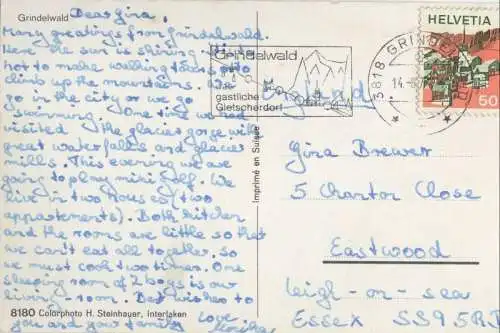 Grindelwald
Dear Gina,
Many greetings from Grindelwald.
Here the sun is shining. It is
hot to make walking tours or to
climb up the mountains. We
go in the city or we go
swimming. One time we
visited the glacier gorge with
great waterfalls and glacier
mills. This evening we are
going to play minigolf. We
live in two houses (two
appartements). Both kitchen
and the rooms are little so that
we can't eat all together. So
we must cook two times. One
sleeping room of 2 boys is our
living-room. Best wishes to
you and your family
Love
8180 Colorphoto H. Steinhauer, Interlaken
Imprimé en Suisse
Grindelwald
gastliche
Gletscherdorf
3818 GRINDELWALD
14.
HELVETIA
50
England
Gina Brewer
5 Chantor Close
Eastwood
Leigh-on-sea
Essex SS9 5R